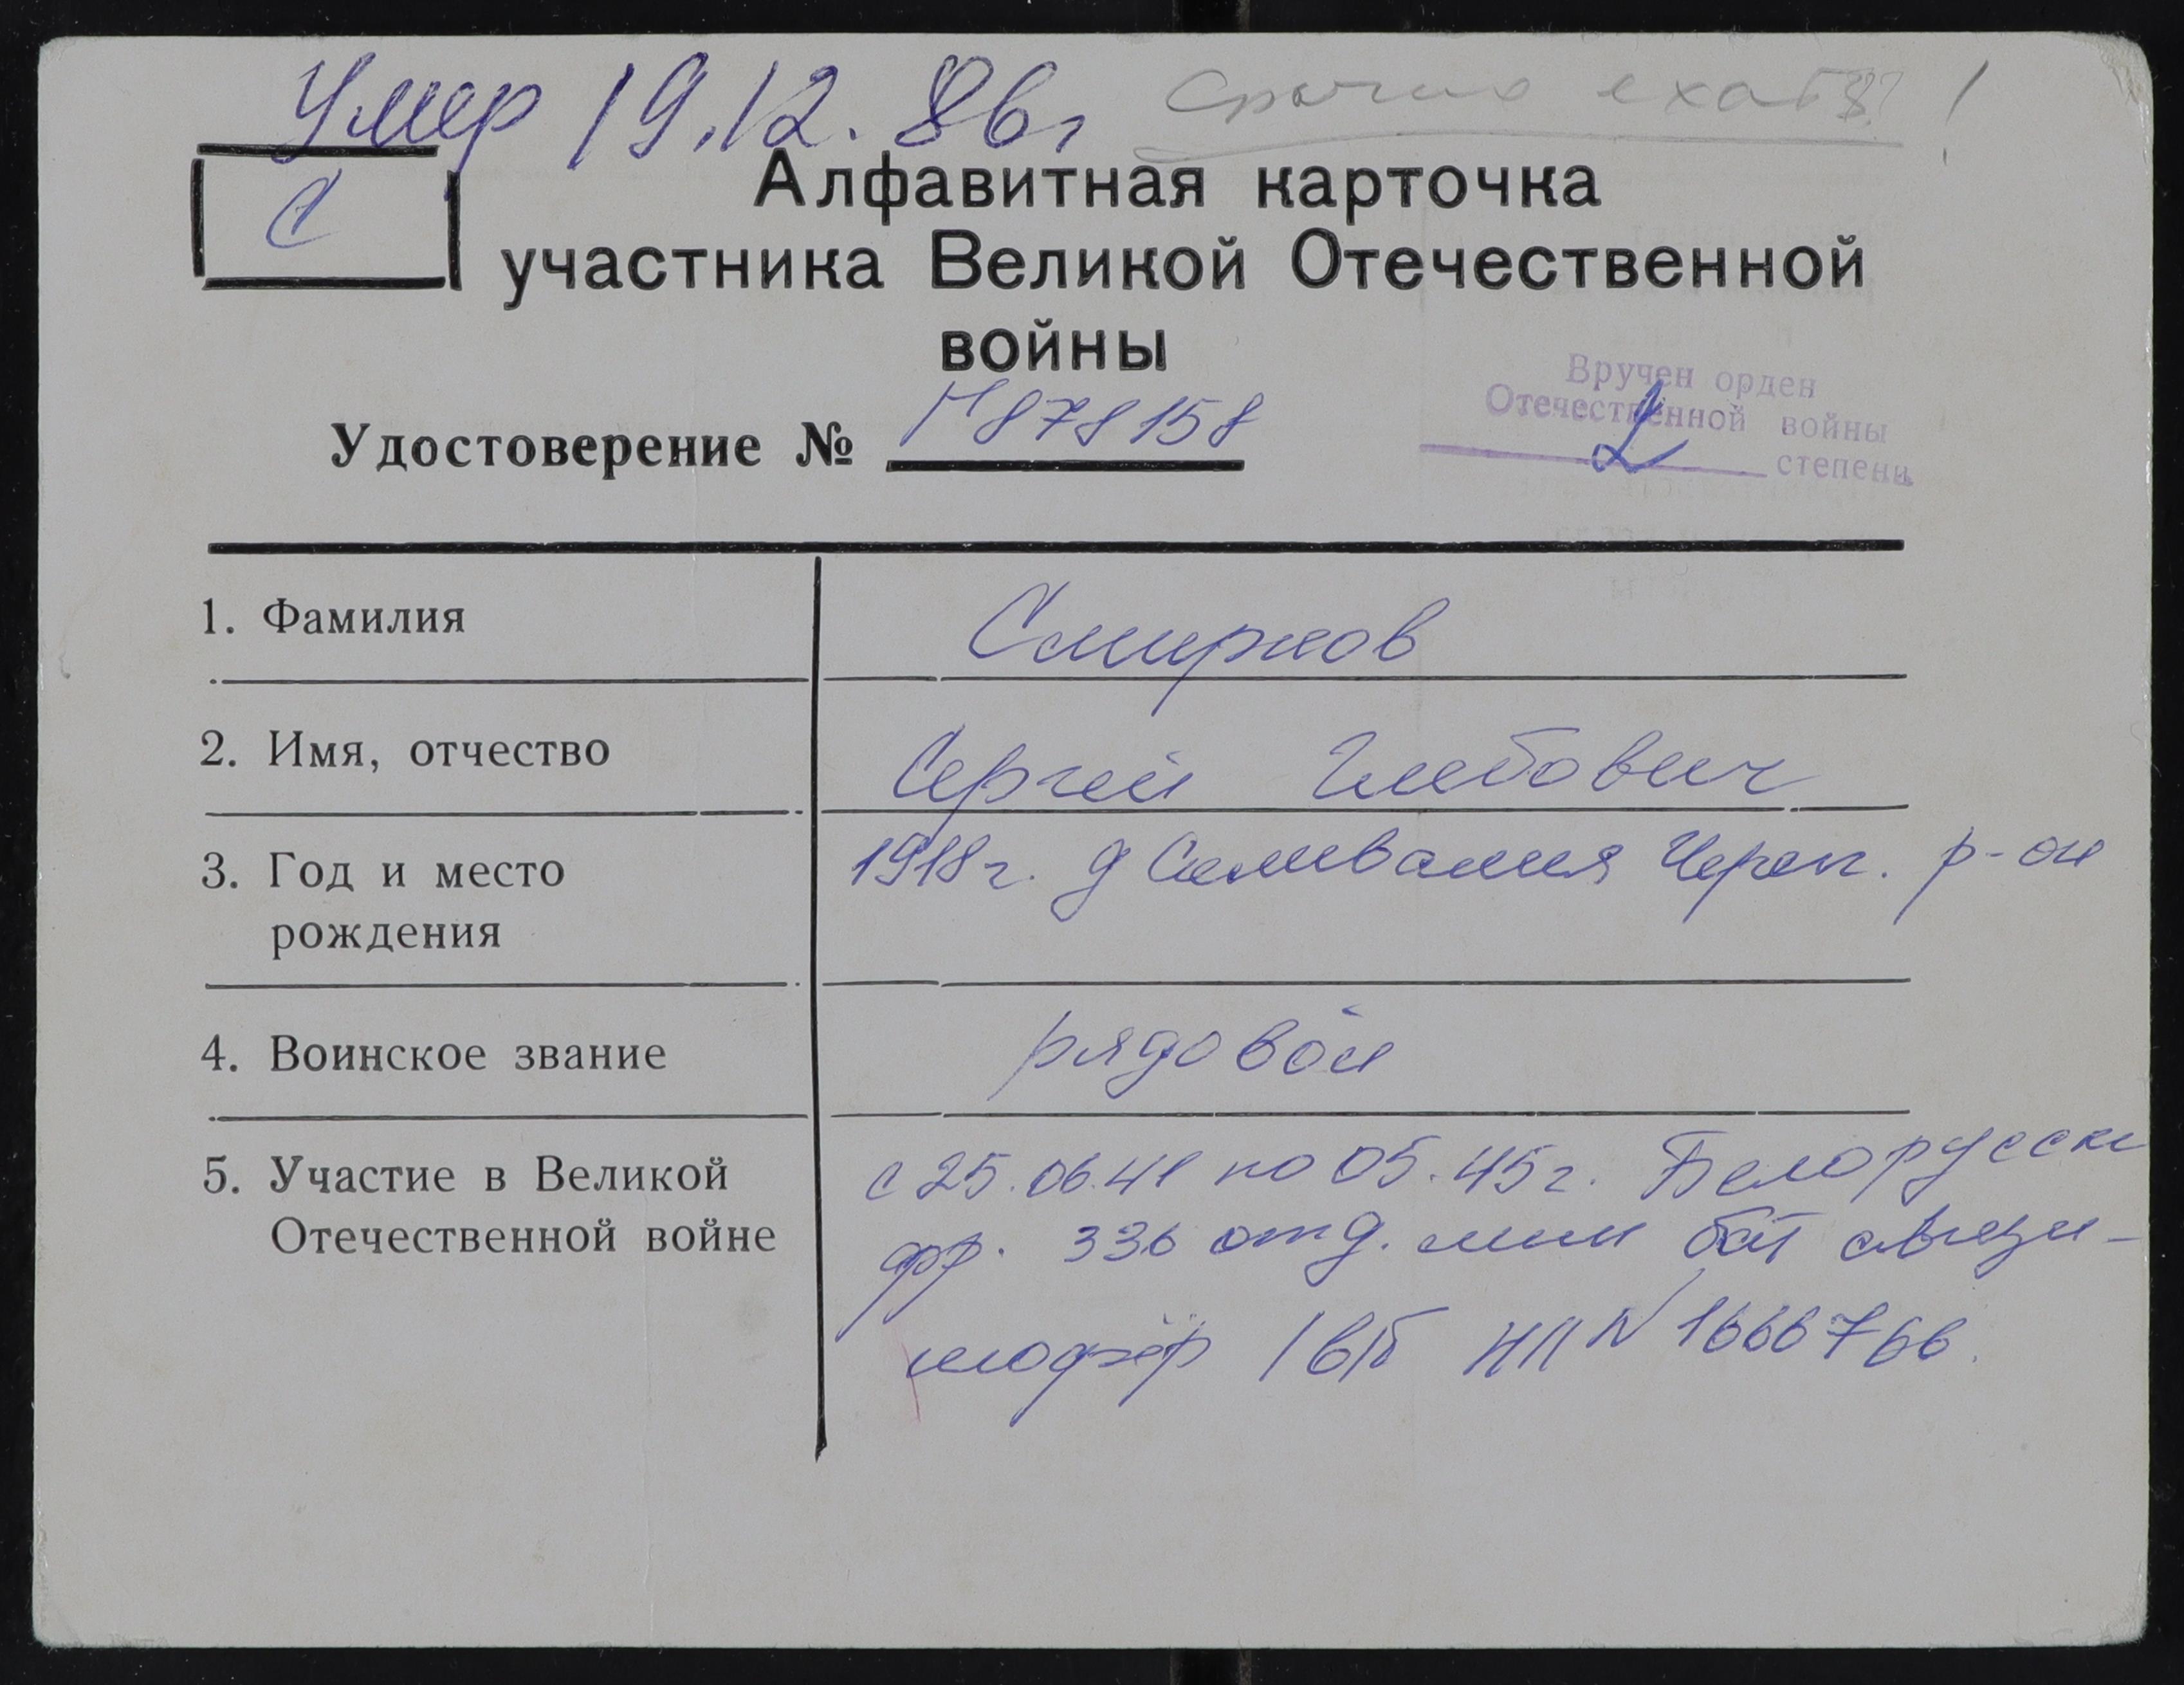 Умер 19.12.86г срочно ехать !
С
Алфавитная карточка
участника Великой Отечественной
войны
Удостоверение № 878158
Вручен орден
Отечественной войны
2 степени
1. Фамилия Смирнов
2. Имя, отчество Сергей Глебович
3. Год и место 1918г. д Селиваниха Череп. р-он
рождения
4. Воинское звание рядовой
5. Участие в Великой с 25.06.41 по 05.45г. Белорусск
Отечественной войне фр. 336 отд. мин бат связи-
шофёр НП № 1666766.